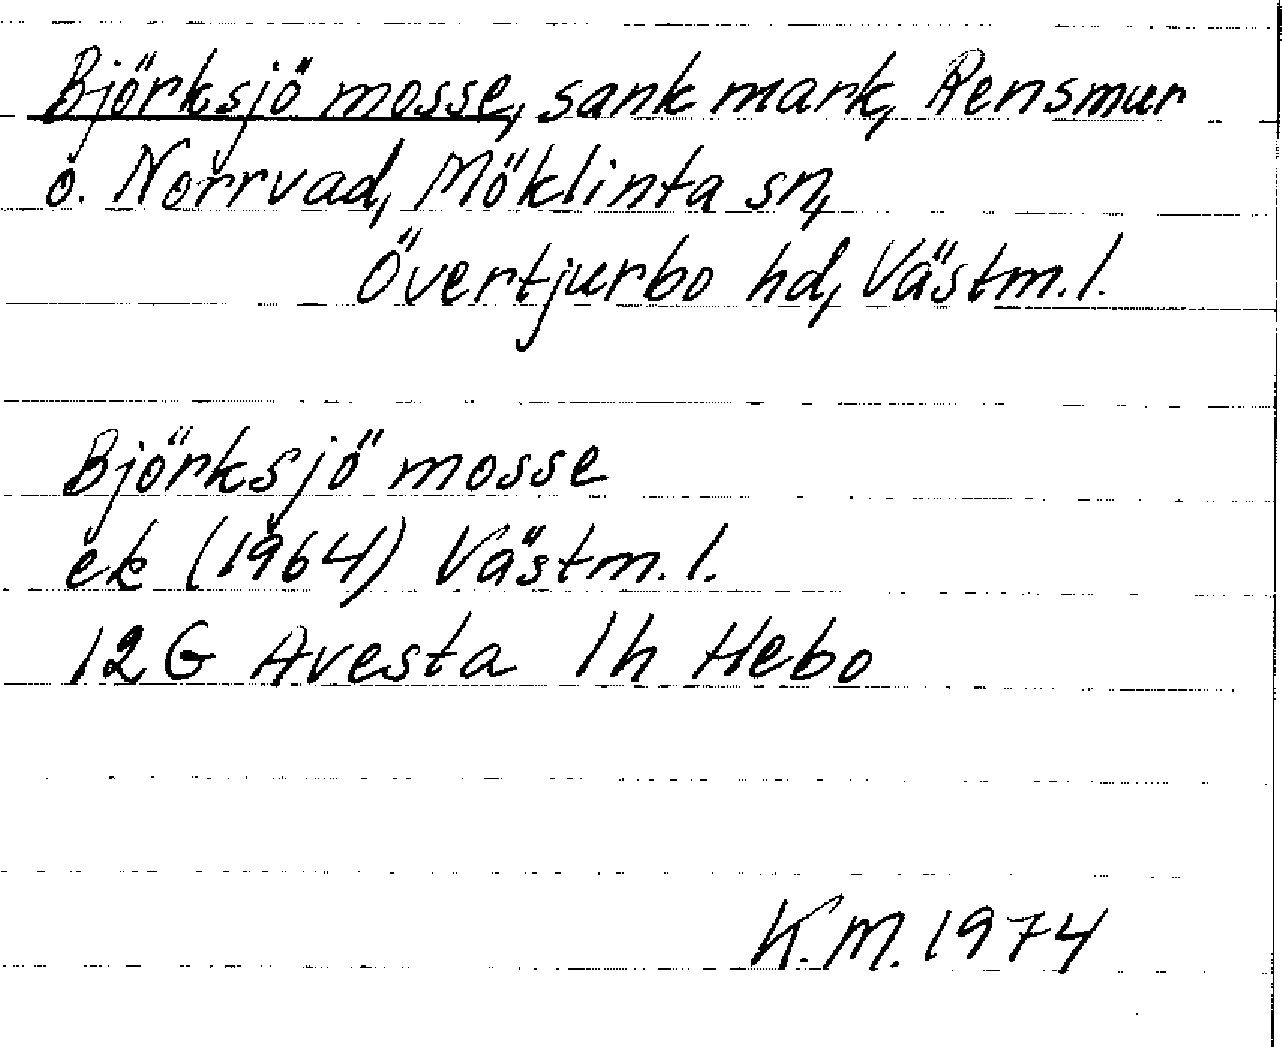 Björksjö mosse, sank mark, Rensmur
o. Norrvad, Möklinta sn,
Övertjurbo hd, Västm. l.
Björksjö mosse
ek (1964) Västm. l.
12 G Avesta 1h Hebo
K.M. 1974